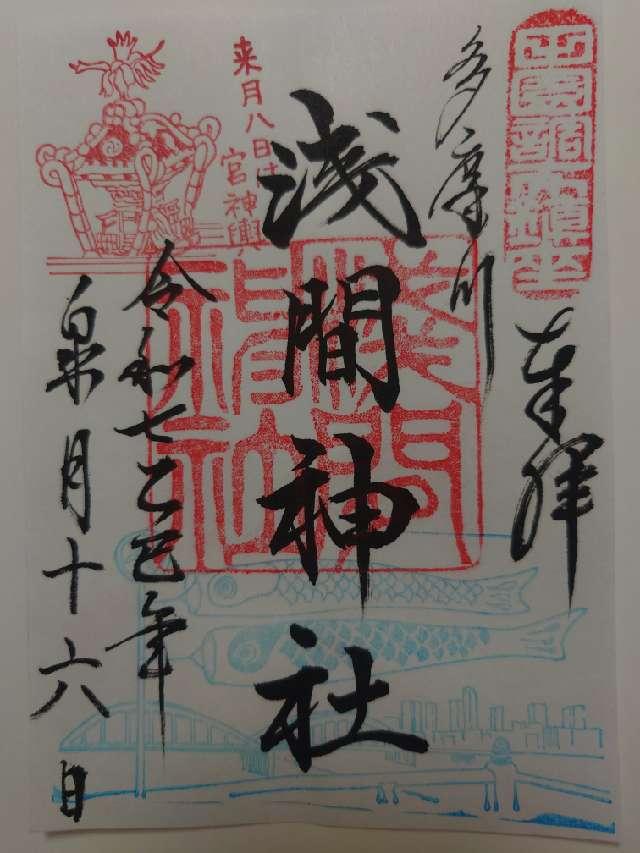 田園調布鎮座
奉拝
多摩川
浅間神社
淺間神社
来月八日は
宮神輿
令和七乙巳年
皐月十六日